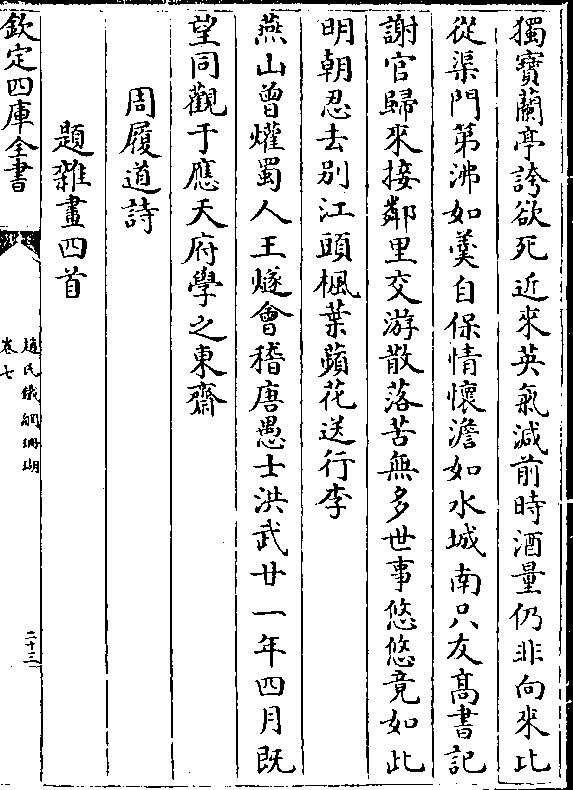 獨寶蘭亭誇欲死近來英氣減前時酒量仍非向來比
從渠門第沸如羮自保情懷澹如水城南只友髙書記
謝官歸來接鄰里交游散落苦無多世事悠悠竟如此
明朝忍去別江頭楓葉蘋花送行李
燕山曾爟蜀人王燧會稽唐愚士洪武廿一年四月既
望同觀于應天府學之東齋
周履道詩
題雜畫四首
欽定四庫全書
趙氏鐵網珊瑚
卷七
二十三